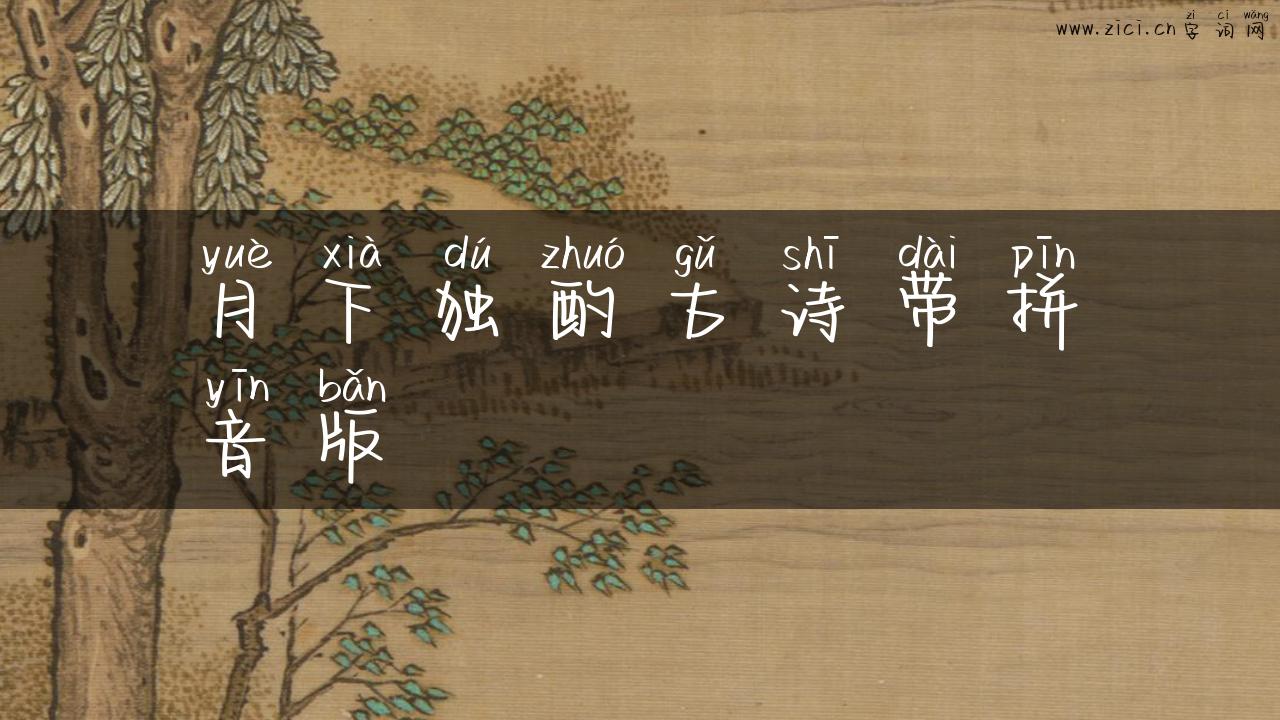 zì cí wǎng
www.zici.cn 字词网
yuè xià dú zhuó gǔ shī dài pīn
月下独酌古诗带拼
yīn bǎn
音版